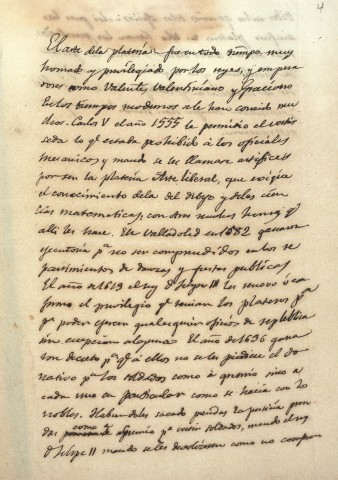 4
El arte de la plateria fue en todo tiempo muy
honrado y privilegiado por los reyes, y empera
dores como Valente, Valentiniano y Graciano
En los tiempos modernos a le han
dor. Carlos V el año 1555 le permitió el vestir
seda lo qe. estaba prohibido á los oficiales
mecanicos y mando se les llamase artifices
por ser la plateria Arte liberal, que exigia
el conocimiento de la del dibujo y de las cien
cias matematicas, con otras muchas honrras qe.
alli les hace. En Valladolid en 1552 ganaron
executoria pa. no ser comprendidos en los re
partimientos de danzas y fiestas publicas
El año de 1619 el rey D. Felipe III les renovo ó con
firmo el privilegio qe. tenian los plateros pa.
poder exercer qualesquier oficios de republica
sin excepcion alguna. El año de 1636 gana
ron decreto pa. qe. á ellos no se les pidiese el do
nativo pa. los soldados como á gremio sino a
cada uno en particular como se hacia con los
nobles. Habiendoles sacado prendas la justicia
como á gremio pa. vestir soldados, mando el rey
D. Felipe II mando se les devolviesen como no